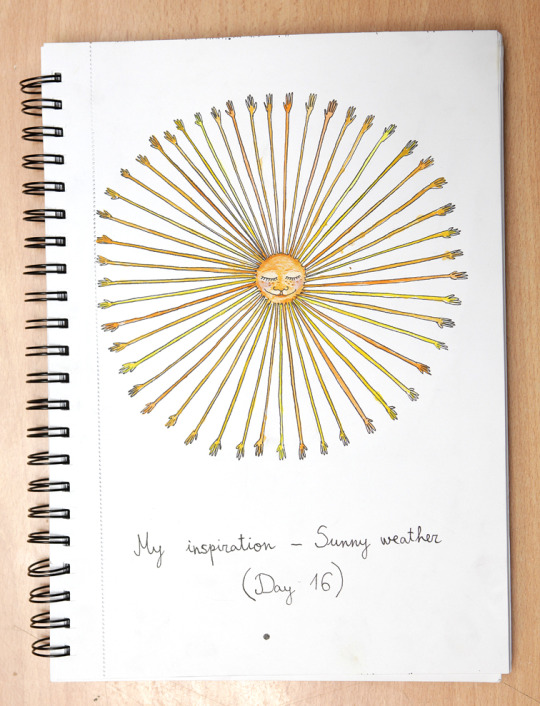 My inspiration – Sunny weather
(Day 16)